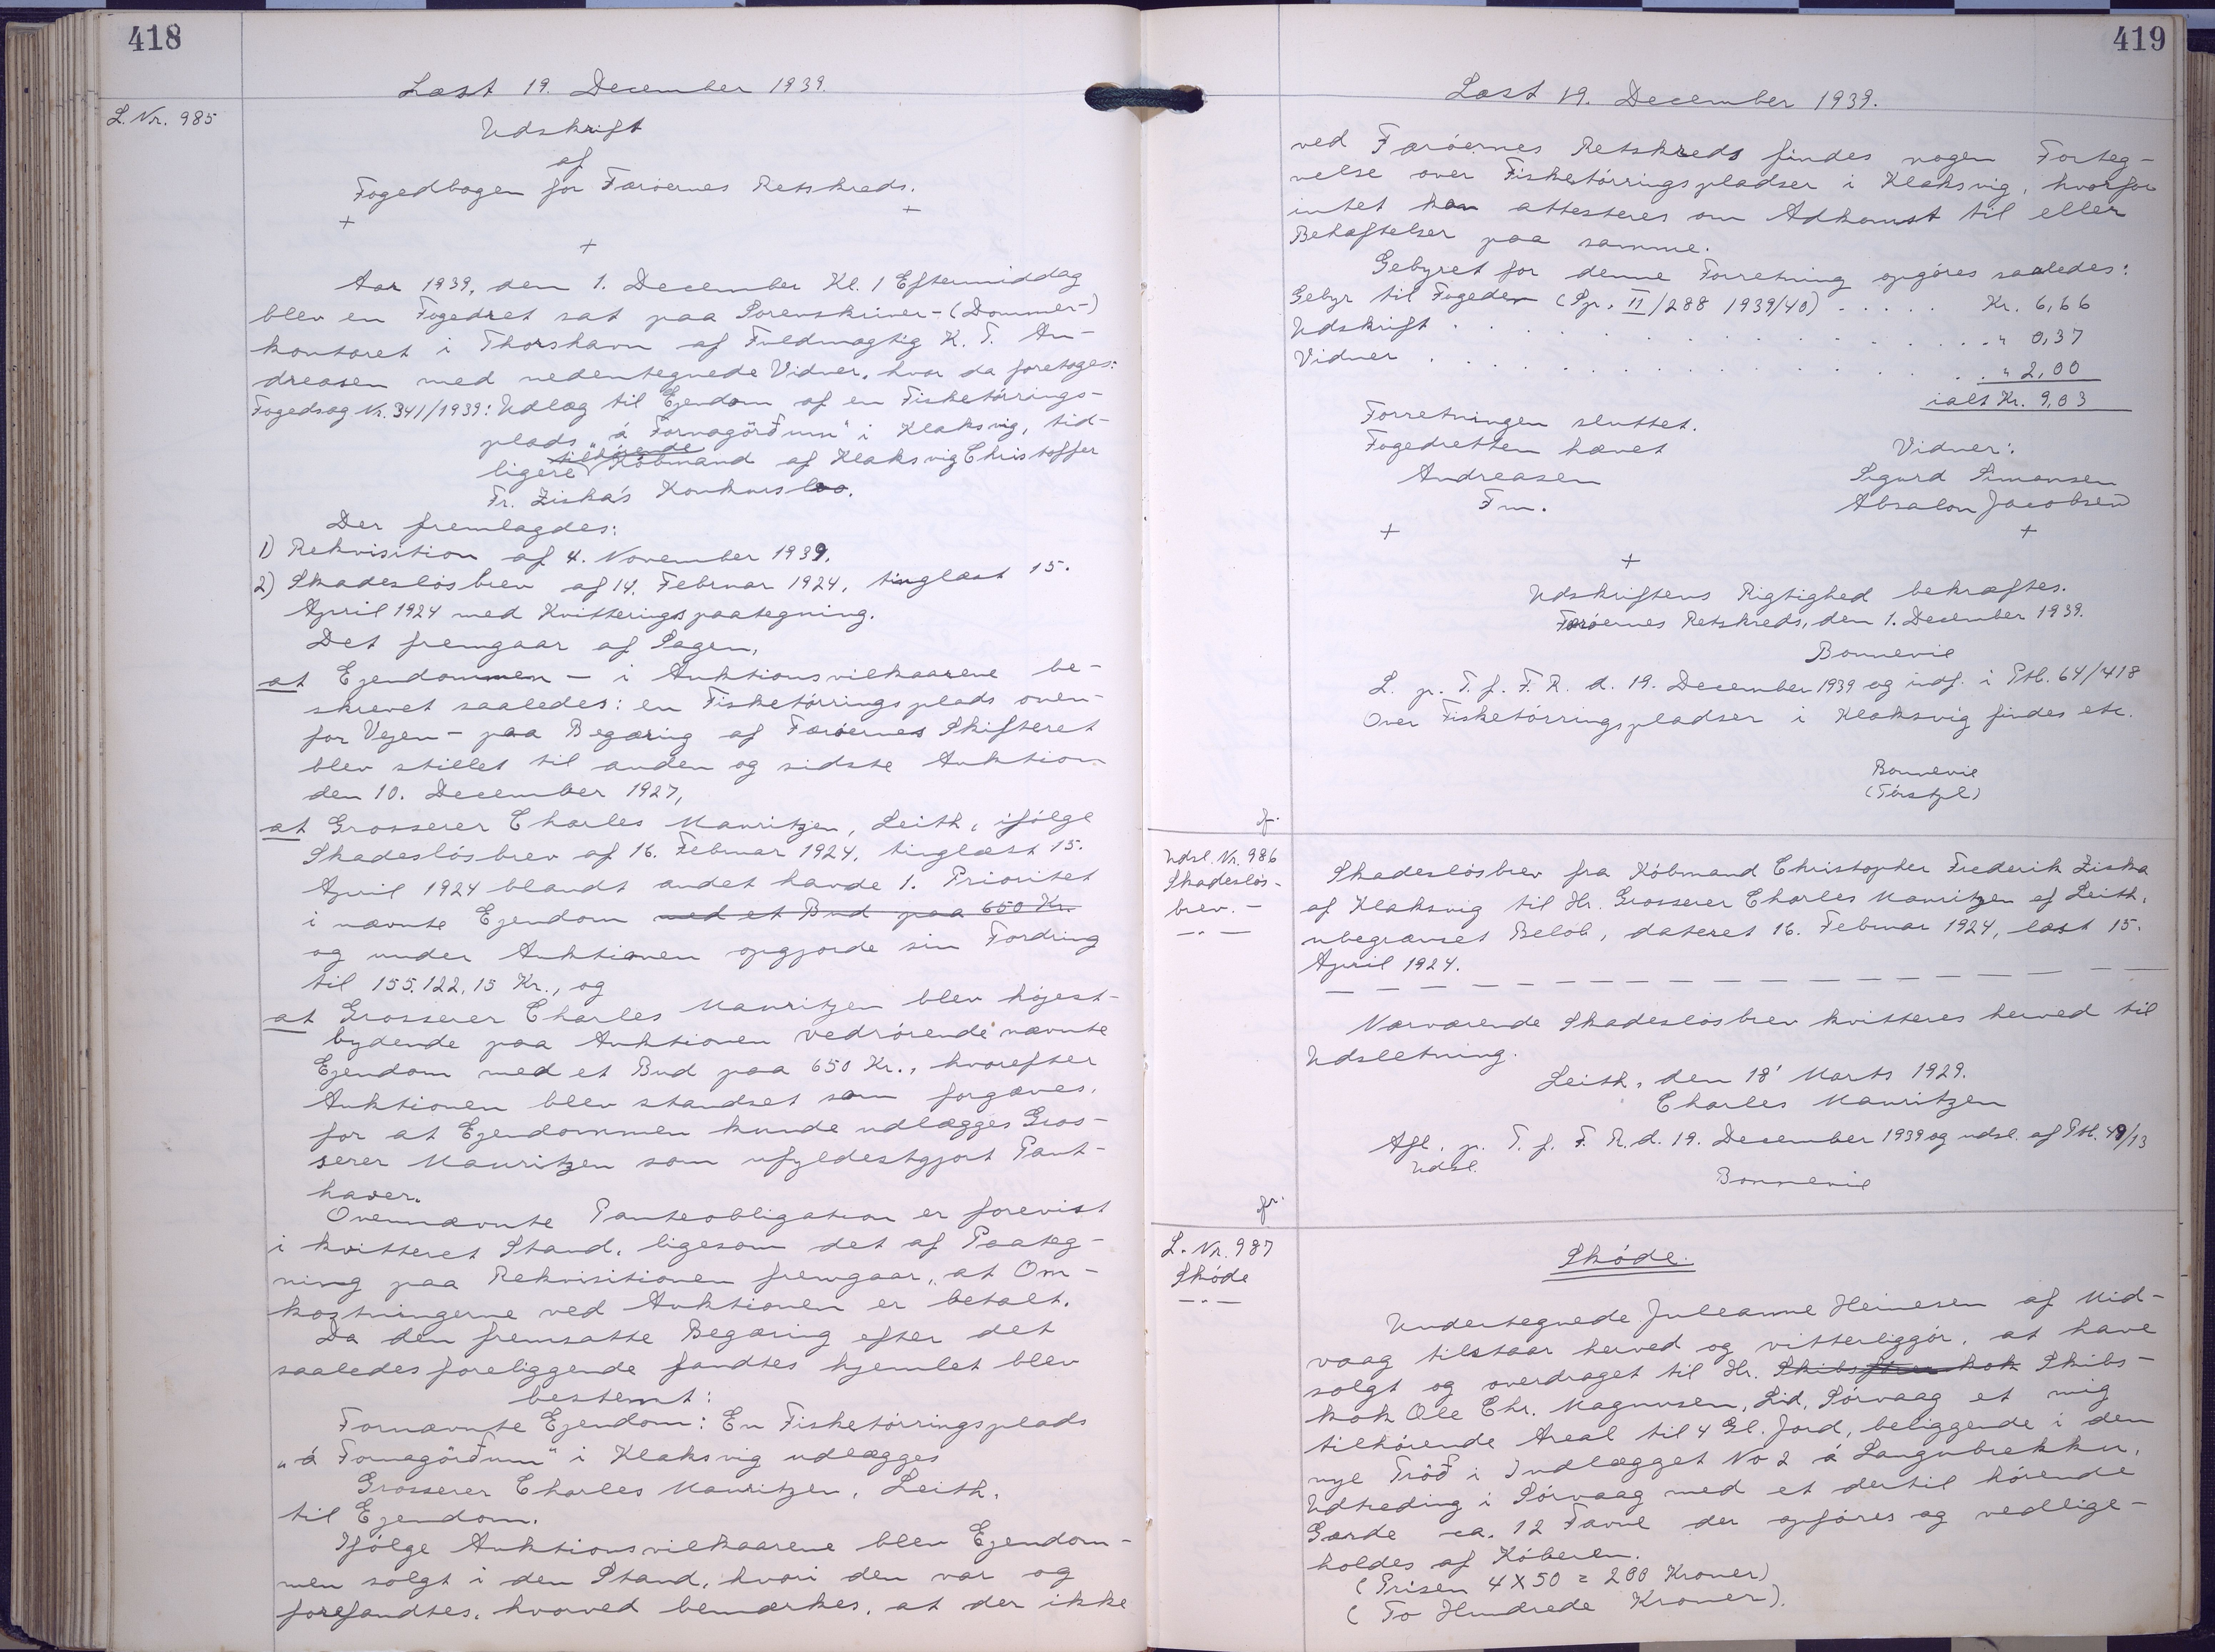 418
Læst 19. December 1939.
L. Nr. 985
Udskrift
af
Fogedbogen for Færøernes Retskreds.
+ +
+
Aar 1939, den 1. December Kl. 1 Eftermiddag
blev en Fogedret sat paa Sorenskriver-(Dommer-)
kontoret i Thorshavn af Fuldmægtig K. T. An-
dreasen med nedentegnede Vidner, hvor da foretoges:
Fogedsag Nr. 341/1939: Udlæg til Ejendom af en Fisketörrings-
plads "á Fornagörðum" i Klaksvig, tid-
tilhörende
ligere Köbmand af Klaksvig Christoffer
Fr. Ziska's Konkursbo.
Der fremlagdes:
1) Rekvisition af 4. November 1939.
2) Skadeslösbrev af 14. Februar 1924, tinglæst 15.
April 1924 med Kvitteringspaategning.
Det fremgaar af Sagen,
at Ejendommen - i Auktionsvilkaarene be-
skrevet saaledes: en Fisketörringsplads oven-
for Vejen - paa Begæring af Færøernes Skifteret
blev stillet til anden og sidste Auktion
den 10. December 1927,
at Grosserer Charles Mauritzen, Leith, ifölge
Skadeslösbrev af 16. Februar 1924, tinglæst 15.
April 1924 blandt andet havde 1. Prioritet
i nævnte Ejendom med et Bud paa 650 Kr.
og under Auktionen opgjorde sin Fordring
til 155.122,15 Kr., og
at Grosserer Charles Mauritzen blev höjest-
bydende paa Auktionen vedrörende nævnte
Ejendom med et Bud paa 650 Kr., hvorefter
Auktionen blev standset som forgæves,
for at Ejendommen kunde udlægges Gros-
serer Mauritzen som ufyldestgjort Pant-
haver.
Ovennævnte Panteobligation er forevist
i kvitteret Stand, ligesom det af Paateg-
ning paa Rekvisitionen fremgaar, at Om-
kostningerne ved Auktionen er betalt.
Da den fremsatte Begæring efter det
saaledes foreliggende fandtes hjemlet blev
bestemt:
Fornævnte Ejendom: En Fisketörringsplads
"á Fornagörðum" i Klaksvig udlægges
Grosserer Charles Mauritzen, Leith,
til Ejendom.
Ifölge Auktionsvilkaarene blev Ejendom-
men solgt i den Stand, hvori den var og
forefandtes, hvorved bemærkes, at der ikke
419
Læst 19. December 1939.
ved Færöernes Retskreds findes nogen Forteg-
nelse over Fisketörringspladser i Klaksvig, hvorfor
intet kan attesteres om Adkomst til eller
Behæftelser paa samme.
Gebyret for denne Forretning opgöres saaledes:
Gebyr til Fogeden (Spr. II/288 1939/40) ..... Kr. 6,66
Udskrift ..... " 0,37
Vidner ..... " 2,00
ialt Kr. 9,03
Forretningen sluttet.
Fogedretten hævet Vidner:
Andreasen Sigurd Simonsen
Fm. Absalon Jacobsen
+ +
+
Udskriftens Rigtighed bekræftes.
Færöernes Retskreds, den 1. December 1939.
Bonnevie
L. p. T. f. F. R. d. 19. December 1939 og indf. i Ptb. 64/418
Over Fisketörringspladser i Klaksvig findes etc.
Bonnevie
Udsl. Nr. 986
Skadeslös-
brev. -
Skadeslösbrev fra Köbmand Christopher Frederik Ziska
af Klaksvig til Hr. Grosserer Charles Mauritzen af Leith,
ubegrænset Belöb, dateret 16. Februar 1924, læst 15.
April 1924.
Nærværende Skadeslösbrev kvitteres herved til
Udsletning.
Leith, den 18' Marts 1929.
Charles Mauritzen
Afl. p. T. f. F. R. d. 19. December 1939 og udsl. af Ptb. 49/13
Udsl.
Bonnevie
L. Nr. 987
Sköde
Sköde.
Undertegnede Juleanne Heinesen af Mid-
vaag tilstaar herved og vitterliggör, at have
solgt og overdraget til Hr. Skibs- 
kok Ole Chr. Magnussen, Lid, Sörvaag et mig
tilhörende Areal til 4 Gl. Jord, beliggende i den
nye Tröð i Indlægget No 2 á Langubrekku,
Udtreding i Sörvaag med et dertil hörende
Gærde ca. 12 Favne der opföres og vedlige-
holdes af Köberen.
(Prisen 4 X 50 = 200 Kroner)
(To Hundrede Kroner).